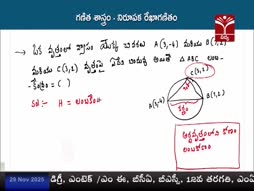 గణిత శాస్త్రం - నిరూపక రేఖాగణితం
విద్య
→ ఒక వృత్తంలో వ్యాసం యొక్క బిందువులు A(3,-4) మరియు B(7,2)
మరియు C(3,2) వృత్తంపై ఏదేని బిందువు అయితే △ABC లంబ-
కేంద్రం = ( )
C(3,2)
Sol:- H = లంబకేంద్రం
A(3,-4)
B(7,2)
అర్ధవృత్తంలోని కోణం
లంబకోణం
25 Nov 2025
డిగ్రీ, ఎంటెక్ / ఎం ఈ, బీసీఏ, బీఎస్సీ, 12వ తరగతి, ఎంసీ